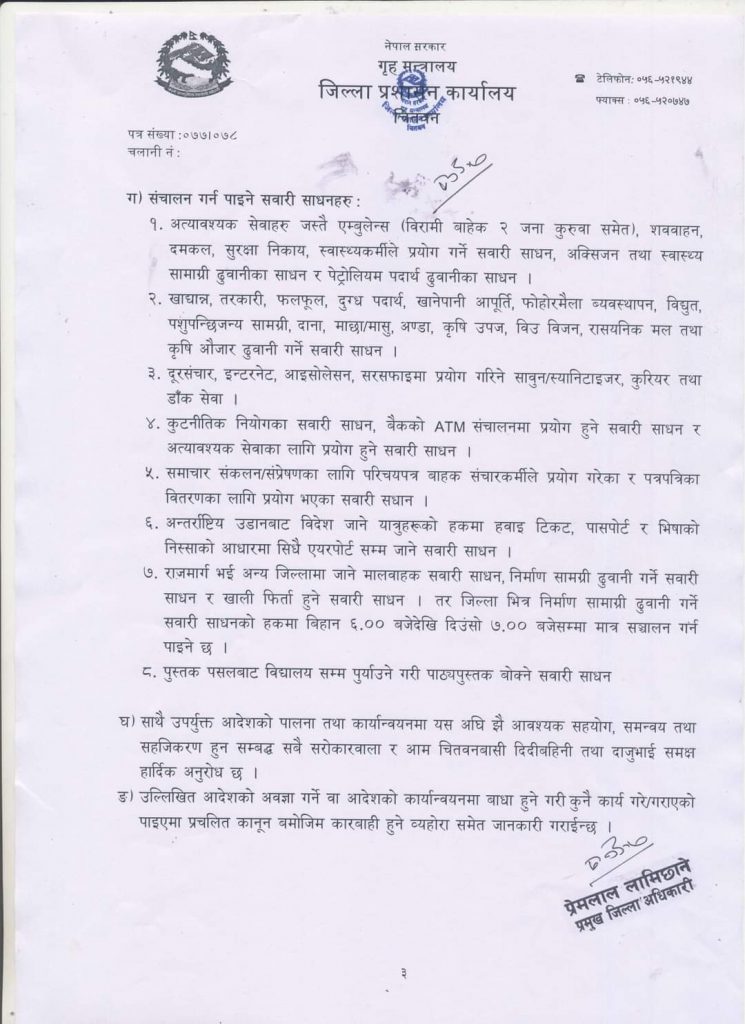 नेपाल सरकार
गृह मन्त्रालय
जिल्ला प्रशासन कार्यालय
चितवन
टेलिफोन: ०५६-५२१९४४
फ्याक्स : ०५६-५२०७४७
पत्र संख्या :०७७।०७८
चलानी नं :
ग) संचालन गर्न पाइने सवारी साधनहरु :
१. अत्यावश्यक सेवाहरु जस्तै एम्बुलेन्स (विरामी बाहेक २ जना कुरुवा समेत), शववाहन,
दमकल, सुरक्षा निकाय, स्वास्थ्यकर्मीले प्रयोग गर्ने सवारी साधन, अक्सिजन तथा स्वास्थ्य
सामाग्री ढुवानीका साधन र पेट्रोलियम पदार्थ ढुवानीका साधन ।
२. खाद्यान्न, तरकारी, फलफूल, दुग्ध पदार्थ, खानेपानी आपूर्ति, फोहोरमैला व्यवस्थापन, विद्युत,
पशुपन्छिजन्य सामग्री, दाना, माछा/मासु, अण्डा, कृषि उपज, विउ विजन, रासयनिक मल तथा
कृषि औजार ढुवानी गर्ने सवारी साधन ।
३. दूरसंचार, इन्टरनेट, आइसोलेसन, सरसफाइमा प्रयोग गरिने साबुन/स्यानिटाइजर, कुरियर तथा
डाँक सेवा ।
४. कुटनीतिक नियोगका सवारी साधन, बैकको ATM संचालनमा प्रयोग हुने सवारी साधन र
अत्यावश्यक सेवाका लागि प्रयोग हुने सवारी साधन ।
५. समाचार संकलन/संप्रेषणका लागि परिचयपत्र बाहक संचारकर्मीले प्रयोग गरेका र पत्रपत्रिका
वितरणका लागि प्रयोग भएका सवारी सधान ।
६. अन्तर्राष्टिय उडानबाट विदेश जाने यात्रुहरूको हकमा हवाइ टिकट, पासपोर्ट र भिषाको
निस्साको आधारमा सिधै एयरपोर्ट सम्म जाने सवारी साधन ।
७. राजमार्ग भई अन्य जिल्लामा जाने मालवाहक सवारी साधन, निर्माण सामग्री ढुवानी गर्ने सवारी
साधन र खाली फिर्ता हुने सवारी साधन । तर जिल्ला भित्र निर्माण सामाग्री ढुवानी गर्ने
सवारी साधनको हकमा बिहान ६.०० बजेदेखि दिउंसो ७.०० बजेसम्मा मात्र सञ्चालन गर्न
पाइने छ ।
८. पुस्तक पसलबाट विद्यालय सम्म पुर्याउने गरी पाठ्यपुस्तक बोक्ने सवारी साधन
घ) साथै उपर्युक्त आदेशको पालना तथा कार्यान्वयनमा यस अघि झै आवश्यक सहयोग, समन्वय तथा
सहजिकरण हुन सम्बद्ध सवै सरोकारवाला र आम चितवनबासी दिदीवहिनी तथा दाजुभाई समक्ष
हार्दिक अनुरोध छ ।
ङ) उल्लिखित आदेशको अवज्ञा गर्ने वा आदेशको कार्यान्वयनमा बाधा हुने गरी कुनै कार्य गरे/गराएको
पाइएमा प्रचलित कानून बमोजिम कारबाही हुने व्यहोरा समेत जानकारी गराईन्छ ।
प्रेमलाल लामिछाने
प्रमुख जिल्ला अधिकारी
३